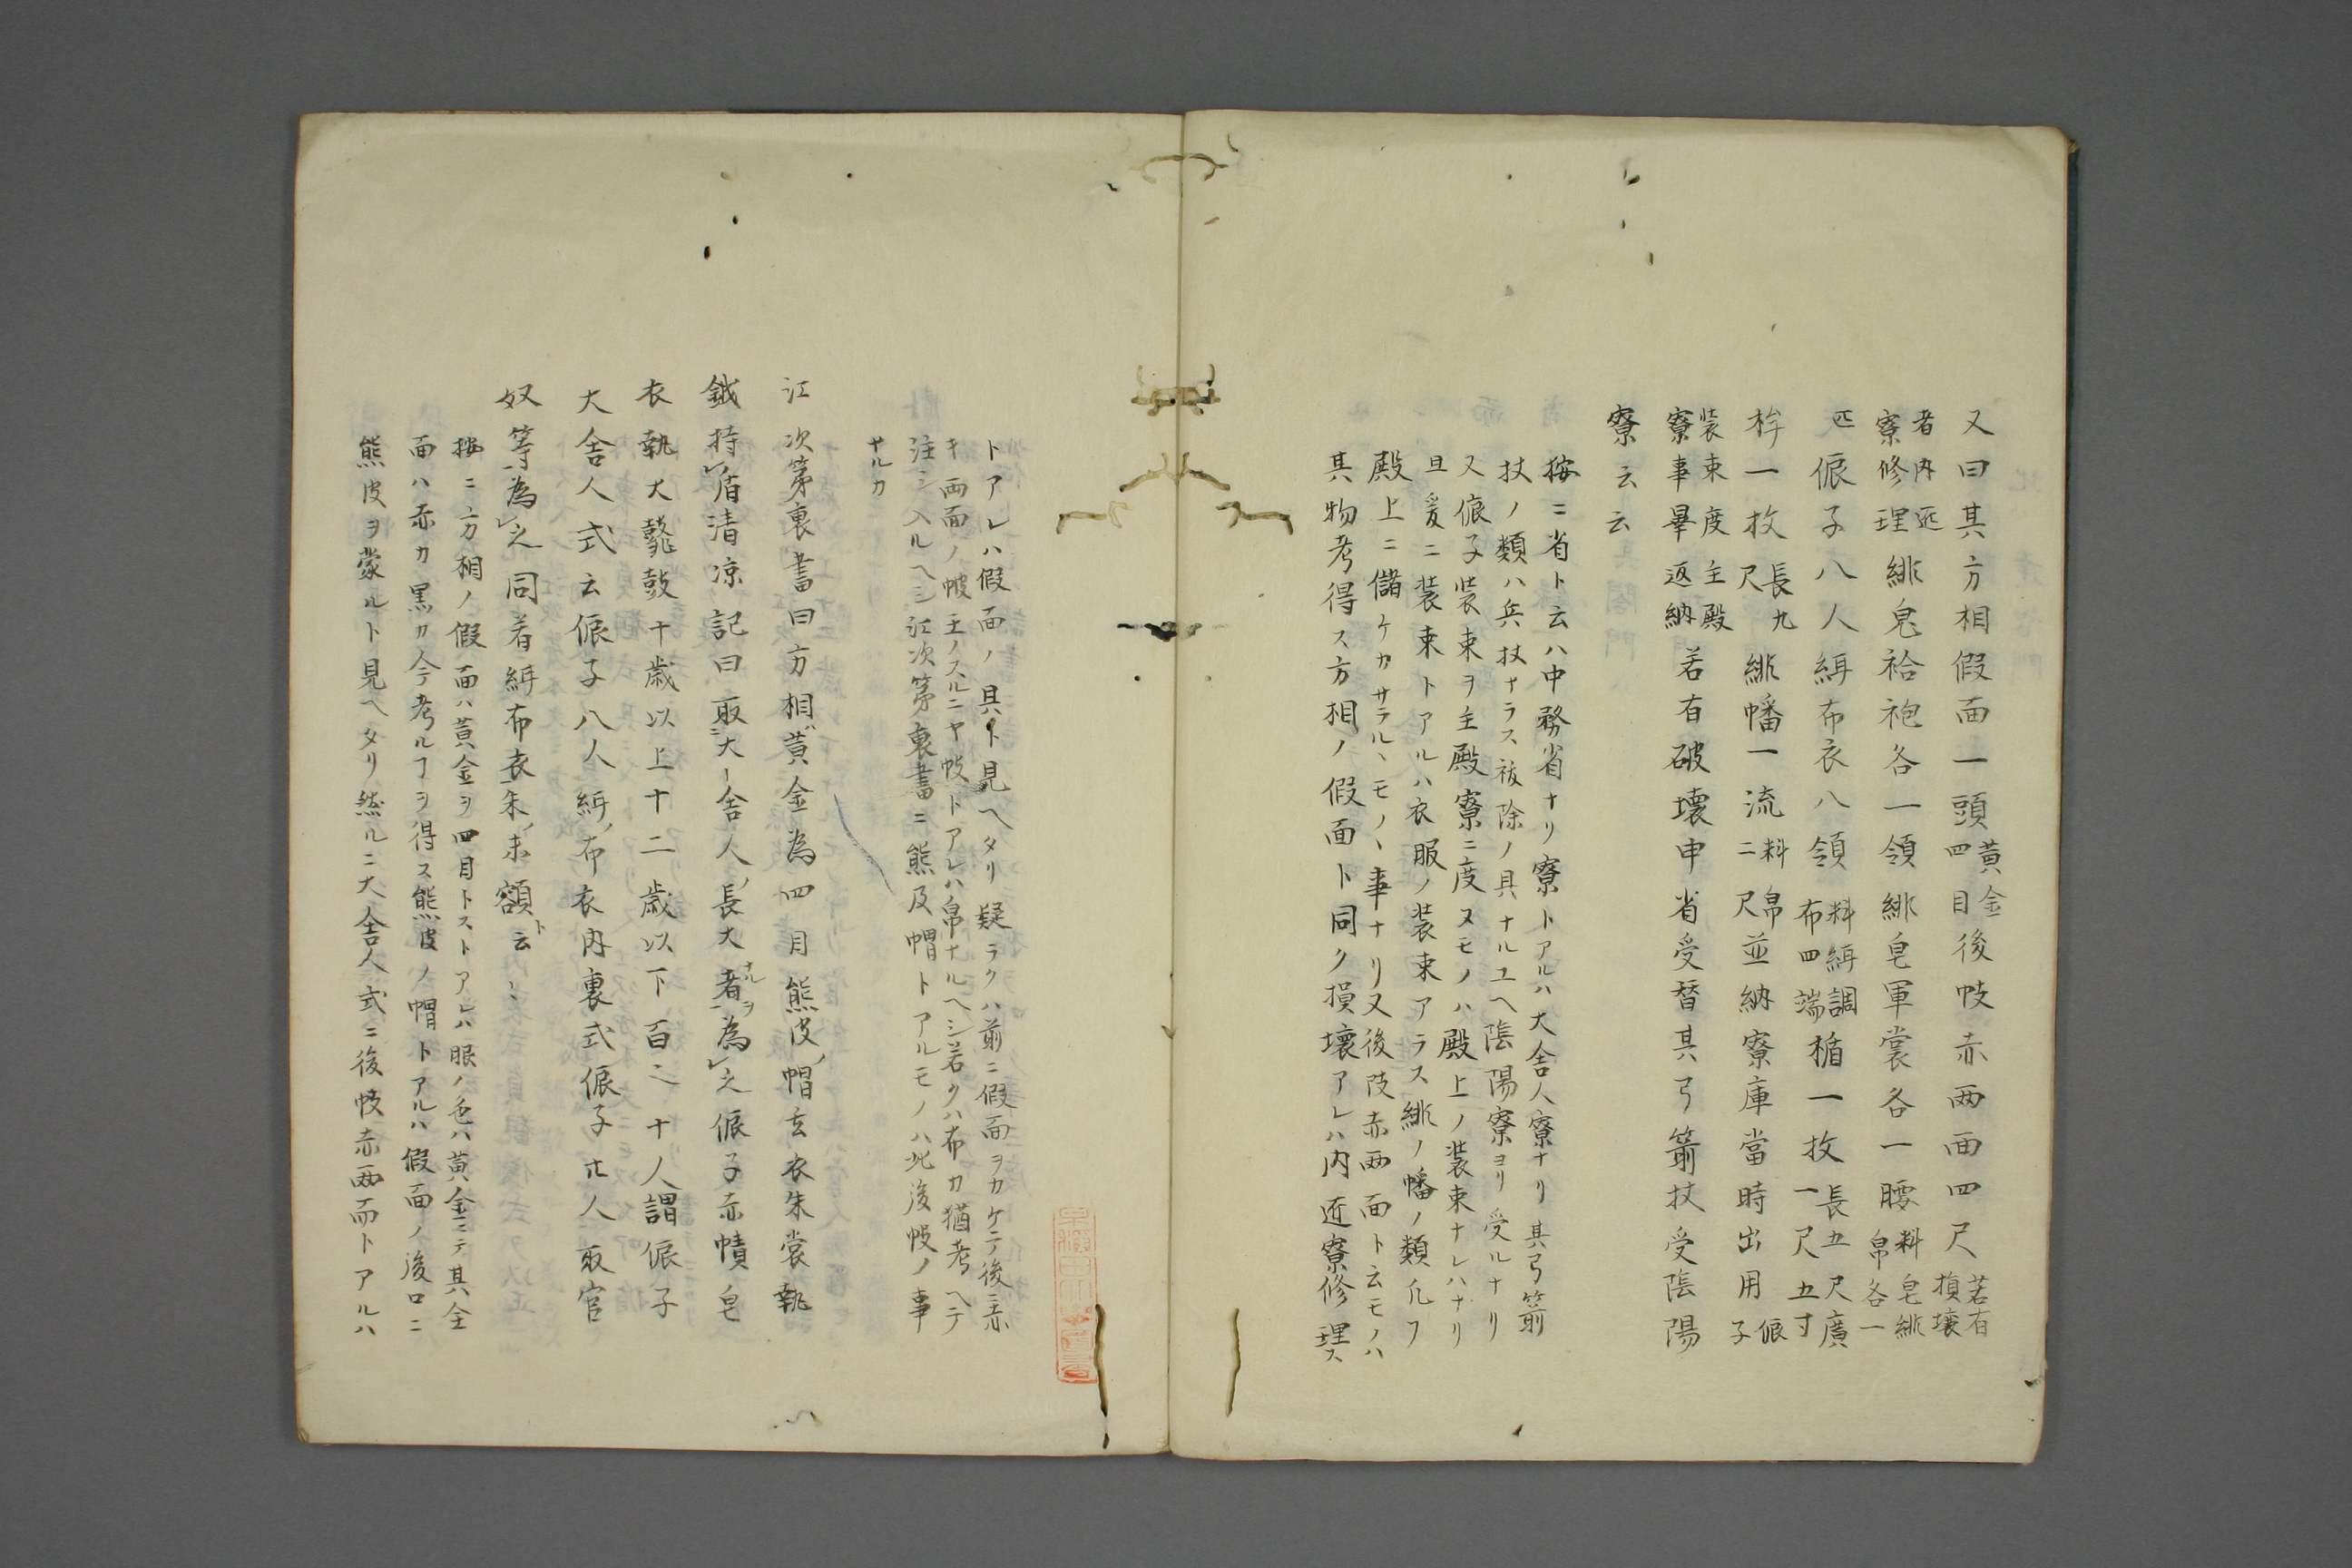 又曰其方相假面一頭黄金四目後帔赤両面四尺若有損壊
者内匠寮修理緋皂袷袍各一領緋皂軍裳各一腰料皂緋帛各一
匹侲子八人緝布衣八領料緝調布四端楯一枚長五尺廣一尺五寸
桙一枚長九尺緋幡一流料帛二尺並納寮庫當時出用侲子
装束度主殿寮事畢返納若有破壊申省受替其弓箭杖受陰陽
寮云云
按ニ省ト云ハ中務省ナリ寮トアルハ大舎人寮ナリ其弓箭
杖ノ類ハ兵杖ナラス祓除ノ具ナルユヘ陰陽寮ヨリ受ルナリ
又侲子装束ヲ主殿寮ニ度スモノハ殿上ノ装束ナレハナリ
且爰ニ装束トアルハ衣服ノ装束アラス緋ノ幡ノ類凡フ
殿上ニ儲ケカサラルヽモノヽ事ナリ又後帔赤両面ト云モノハ
其物考得ス方相ノ假面ト同ク損壊アレハ内匠寮修理ス
トアレハ假面ノ具ト見ヘタリ疑ラクハ前ニ假面ヲカケテ後ニ赤
キ両面ノ帔ヲスルニヤ帔トアレハ帛ナルヘシ若クハ布カ猶考ヘテ
注シ入ルヘシ江次第裏書ニ熊及帽トアルモノハ此後帔ノ事
ナルカ
江次第裏書曰方相黄金為四目熊皮帽玄衣朱裳執
鉞持盾清凉記曰取大舎人長大者ナルヲ為之侲子赤幘皂
衣執大鼗鼓十歳以上十二歳以下百二十人謂侲子
大舎人式云侲子八人緝布衣内裏式侲子廿人取官
奴等為之同着緝布衣朱末額ト云〻
按ニ方相ノ假面ハ黄金ヲ四目トストアレハ眼ノ色ハ黄金ニテ其全
面ハ赤カ黒カ今考ルヿヲ得ス熊皮ノ帽トアルハ假面ノ後ロニ
熊皮ヲ蒙ルト見ヘタリ然ルニ大舎人式ニ後帔赤両面トアルハ